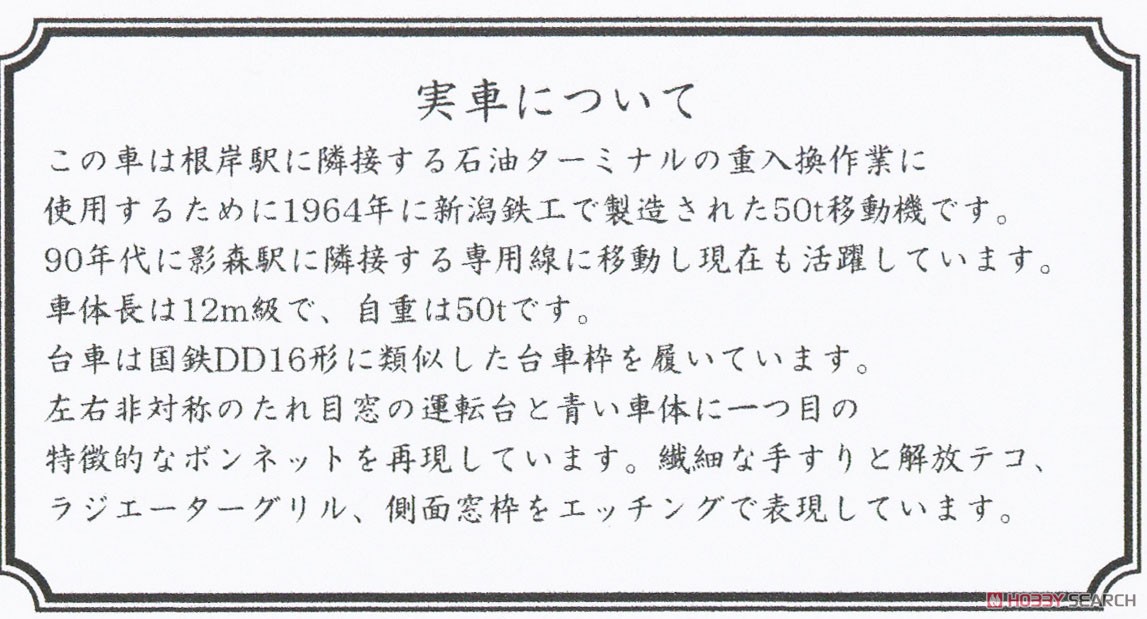 実車について
この車は根岸駅に隣接する石油ターミナルの重入換作業に
使用するために1964年に新潟鉄工で製造された50t移動機です。
90年代に影森駅に隣接する専用線に移動し現在も活躍しています。
車体長は12m級で、自重は50tです。
台車は国鉄DD16形に類似した台車枠を履いています。
左右非対称のたれ目窓の運転台と青い車体に一つ目の
特徴的なボンネットを再現しています。繊細な手すりと解放テコ、
ラジエーターグリル、側面窓枠をエッチングで表現しています。
HOBBY SEARCH